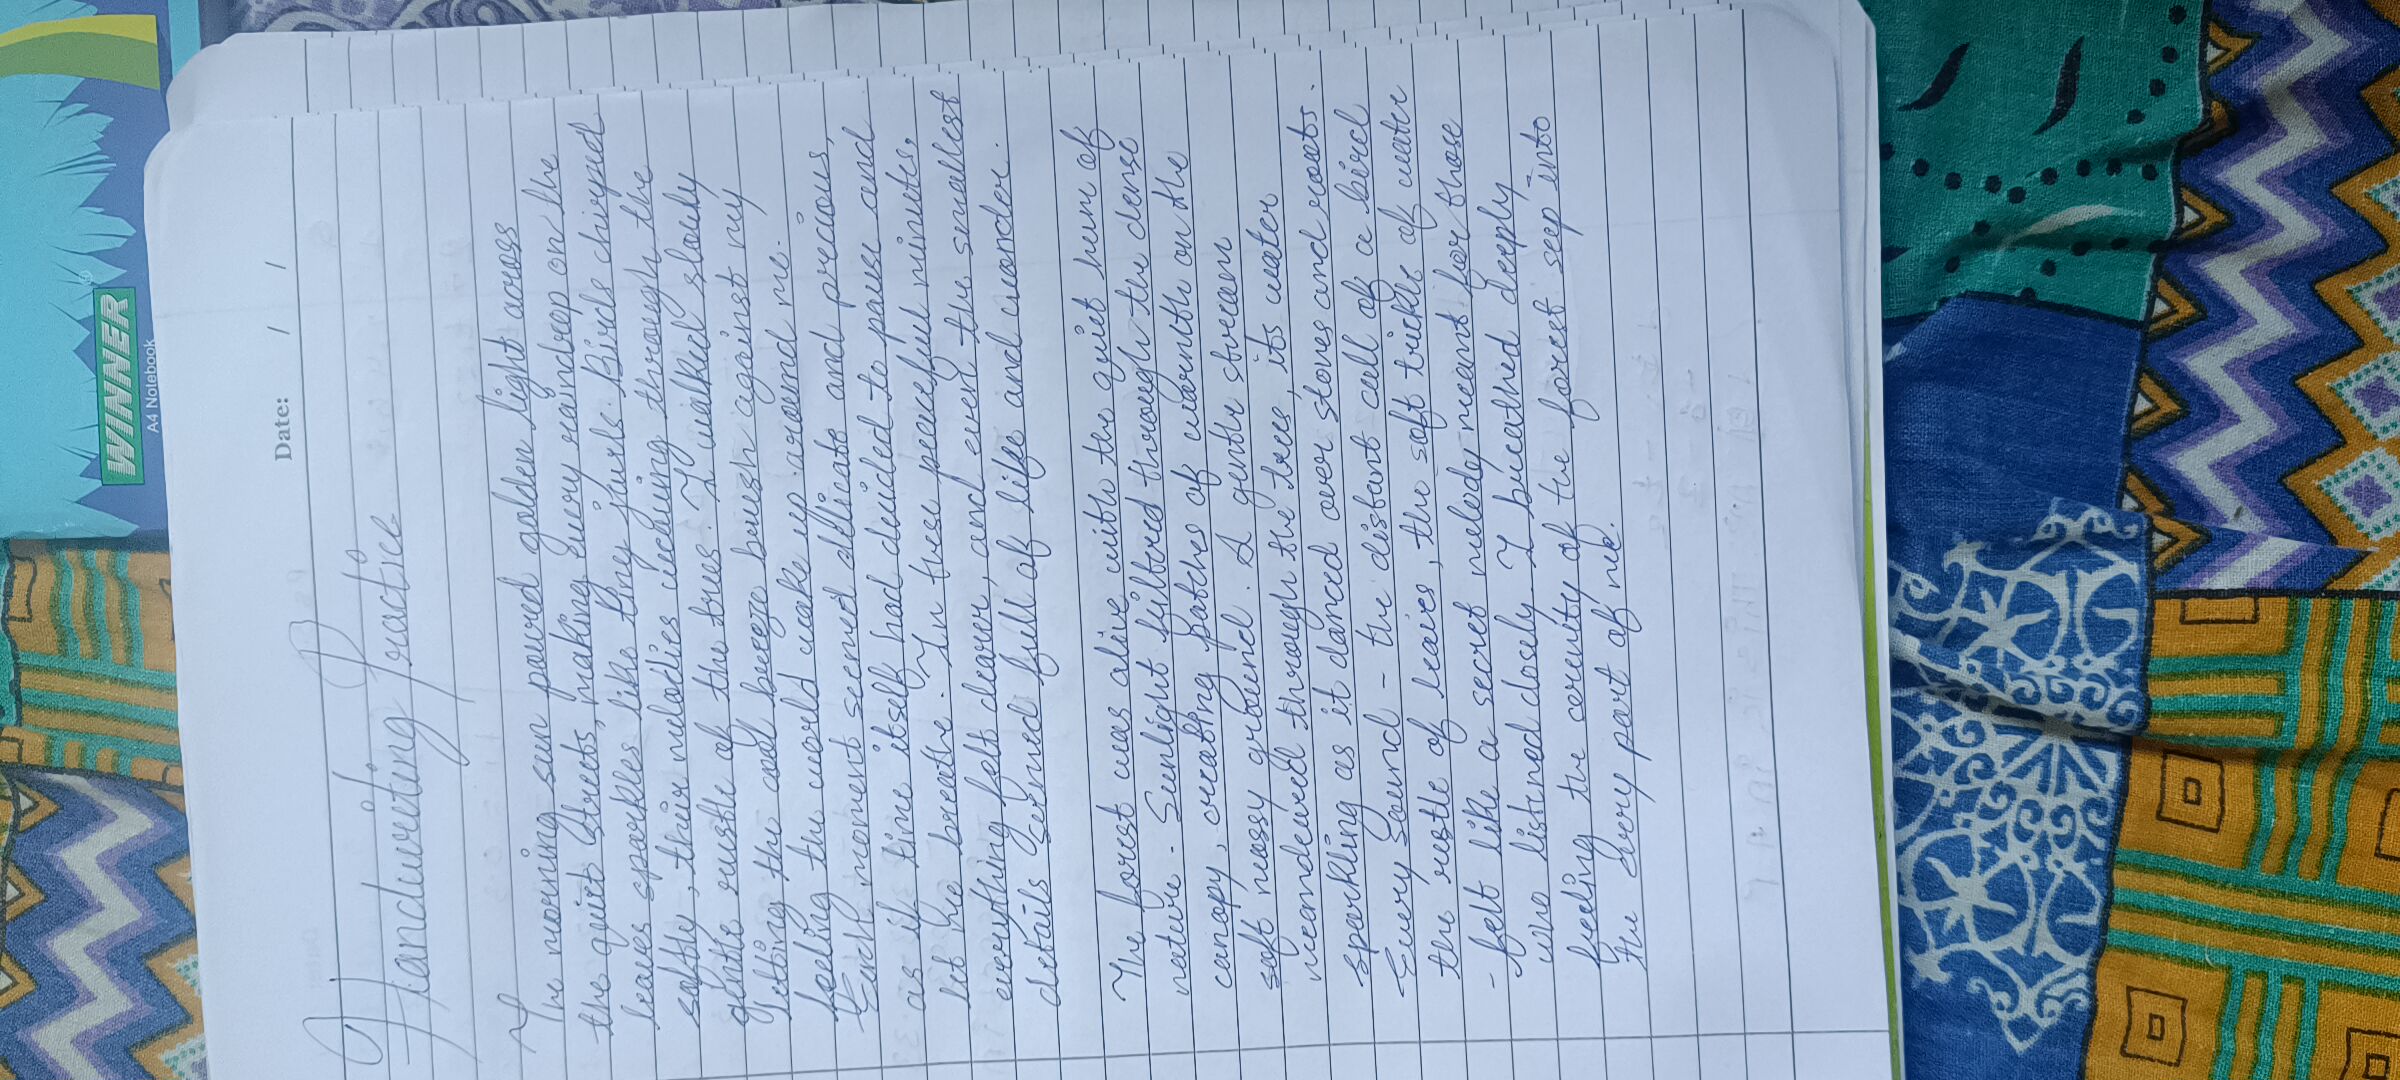 WINNER
A4 Notebook
Date: / /
Handwriting Practice
The morning sun poured golden light across
the quiet streets, making every raindrop on the
leaves sparkles like tiny jewls. Birds chirped
softly, their melodies weaving through the
gentle rustle of the trees. I walked slowly
letting the cool breeze brush against my
feeling the world wake up around me.
Each moment seemed delicate and precious,
as if time itself had decided to pause and
let me breathe. In these peaceful minutes,
everything felt clearer, and even the smallest
details seemed full of life and wonder.
The forest was alive with the quiet hum of
nature. Sunlight filtered through the dense
canopy, creating patches of warmth on the
soft mossy ground. A gentle stream
meandered through the trees, its water
sparkling as it danced over stones and roots.
Every sound - the distant call of a bird
the rustle of leaves, the soft trickle of water
- felt like a secret melody meant for those
who listened closely. I breathed deeply
feeling the serenity of the forest seep into
the every part of me.